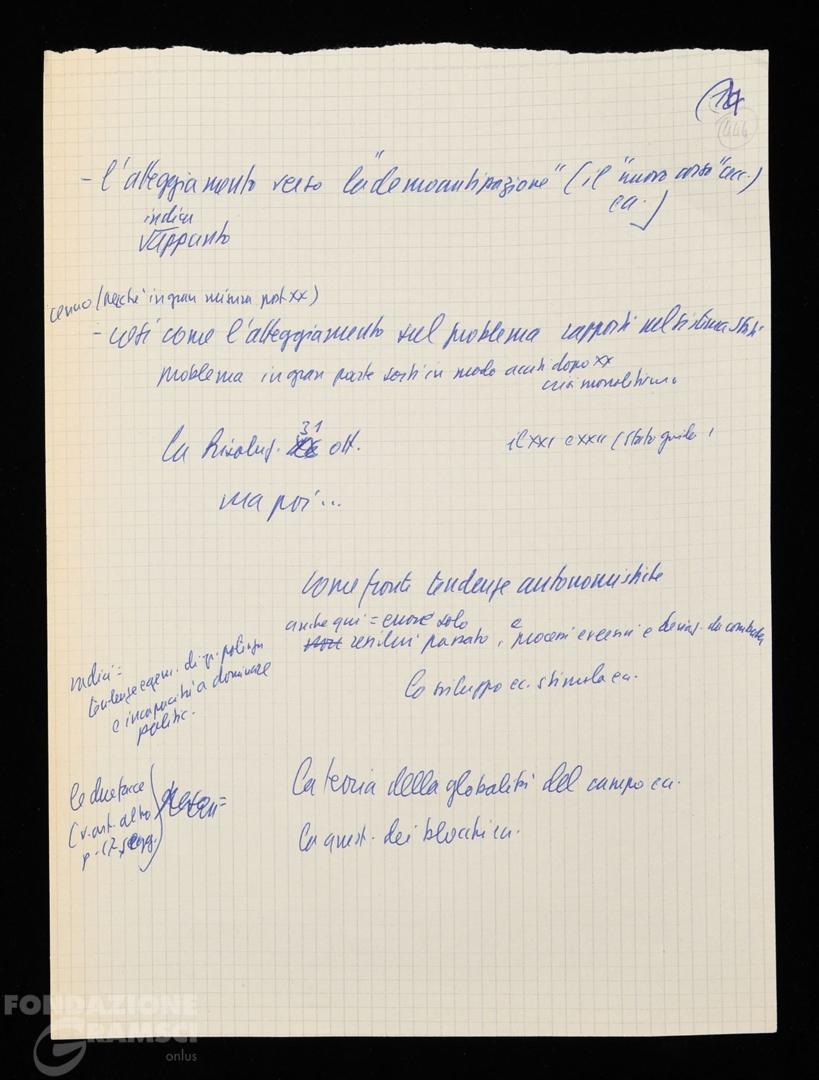 14
446
- l'atteggiamento verso la "democratizzazione" (il "nuovo corso" cec.)
ec.)
indica
√appunto
cenno (perché in gran misura post XX)
- così come l'atteggiamento sul problema rapporti nel sistema stati
problema in gran parte sorti in modo acuti dopo XX
crisi monolitismo
la Risoluz. 31 ott.
il XXI e XXII (stato guida)
ma poi...
come fronte tendenze autonomistiche
anche qui = errore solo
residui passato, e processi
e deviaz. da combatt.
lo sviluppo ec. stimola ec.
radici =
tendenze egem. di gr. potenza
e incapacità a dominare
politic.
le due facce
(v. ant. altro
p. 17, segg.)
La teoria della globalità del campo ec.
la quest. dei blocchi ec.
FONDAZIONE
GRAMSCI
onlus